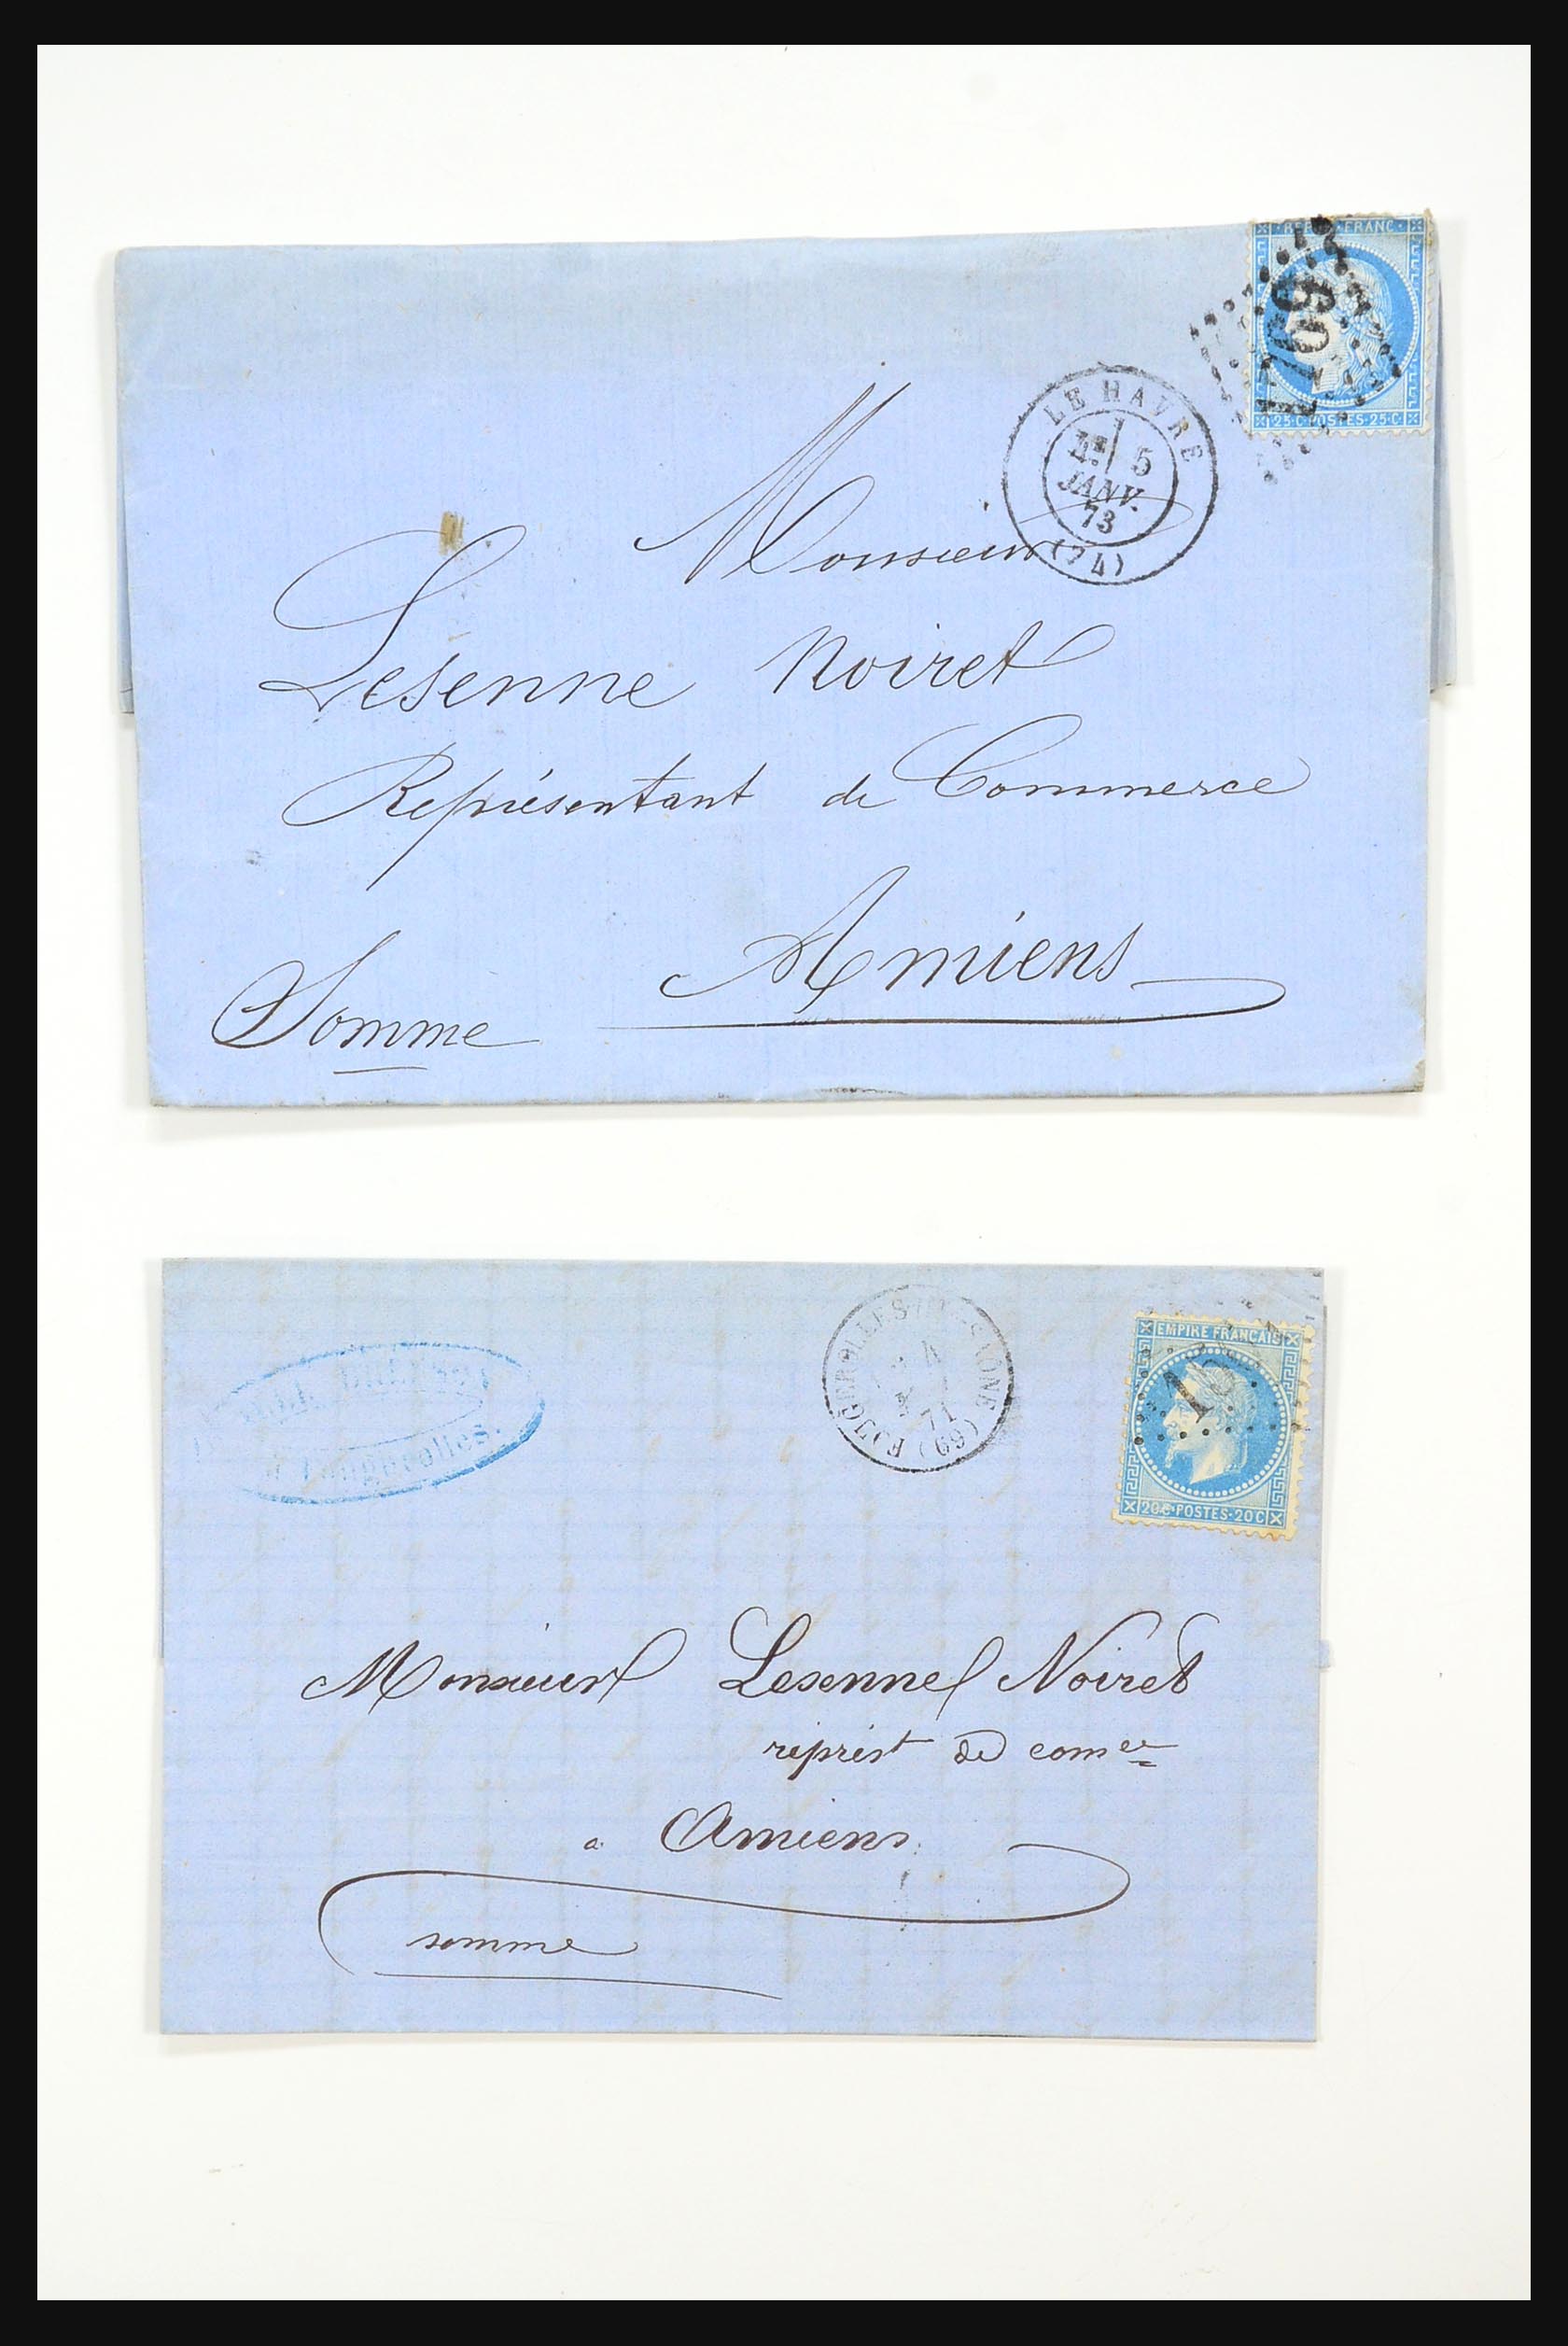 REPUB · FRANC ·
1769
25 · C · POSTES · 25 · C ·
LE HAVRE
4E 5
JANV.
73
(74)
Monsieur
Lesenne Noiret
Représentant de Commerce
Amiens
Somme
FOUGEROLLES
71
(69)
EMPIRE FRANÇAIS
20C · POSTES · 20C
Fougerolles.
Monsieur Lesenne Noiret
représt de comce
a Amiens
somme